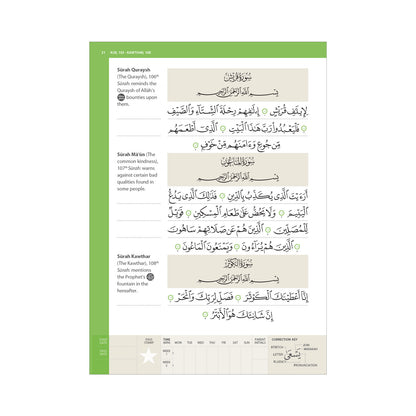 KAWTHAR, 108
Sūrah Quraysh
(The Quraysh), 106th
Sūrah reminds the
Quraysh of Allah's
bounties upon
them.
سُورَةُ قُرَيْشٍ
بِسْمِ اللَّهِ الرَّحْمَٰنِ الرَّحِيمِ
لِإِيلَٰفِ قُرَيْشٍ إِۦلَٰفِهِمْ رِحْلَةَ ٱلشِّتَآءِ وَٱلصَّيْفِ
فَلْيَعْبُدُوا۟ رَبَّ هَٰذَا ٱلْبَيْتِ ٱلَّذِىٓ أَطْعَمَهُم
مِّن جُوعٍ وَءَامَنَهُم مِّنْ خَوْفٍۭ
Sūrah Mā'ūn (The
common kindness),
107th Sūrah warns
against certain bad
qualities found in
some people.
سُورَةُ المَاعُونِ
بِسْمِ اللَّهِ الرَّحْمَٰنِ الرَّحِيمِ
أَرَءَيْتَ ٱلَّذِى يُكَذِّبُ بِٱلدِّينِ فَذَٰلِكَ ٱلَّذِى يَدُعُّ
ٱلْيَتِيمَ وَلَا يَحُضُّ عَلَىٰ طَعَامِ ٱلْمِسْكِينِ فَوَيْلٌ
لِّلْمُصَلِّينَ ٱلَّذِينَ هُمْ عَن صَلَاتِهِمْ سَاهُونَ
ٱلَّذِينَ هُمْ يُرَآءُونَ وَيَمْنَعُونَ ٱلْمَاعُونَ
Sūrah Kawthar
(The Kawthar), 108th
Sūrah mentions
the Prophet's
fountain in the
hereafter.
سُورَةُ الكَوْثَرِ
بِسْمِ اللَّهِ الرَّحْمَٰنِ الرَّحِيمِ
إِنَّآ أَعْطَيْنَٰكَ ٱلْكَوْثَرَ فَصَلِّ لِرَبِّكَ وَٱنْحَرْ
إِنَّ شَانِئَكَ هُوَ ٱلْأَبْتَرُ
START DATE
PAGE STAMP
TIME MON TUE WED THU FRI SAT SUN
PARENT INITIALS
CORRECTION KEY
WEEK 1
WEEK 2
STRETCH
LETTER
FLUENCY
PRONUNCIATION
يَسْعَىٰ